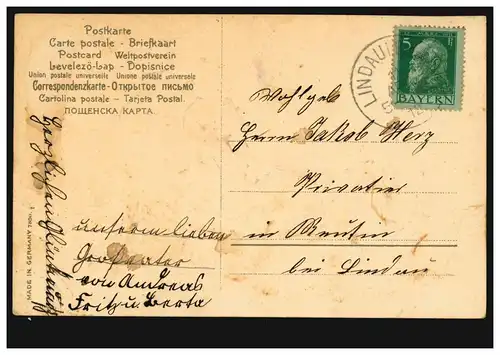 Postkarte
Carte postale - Briefkaart
Postcard Weltpostverein
Levelező-Lap - Dopisnice
Union postale universelle Unione postale universale
Correspondenzkarte - Открытое письмо
Cartolina postale - Tarjeta Postal.
ПОЩЕНСКА КАРТА.
MADE IN GERMANY
unserm lieben
Großvater
von Andreas
Fritz u. Berta
5
BAYERN
LINDAU
Wohlgeb
Herrn Jakob Herz
Privatier
in Reutin
bei Lindau